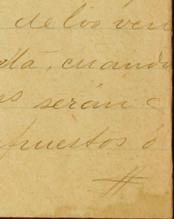 de los ven
tá, cuando
as serán
puestos ó